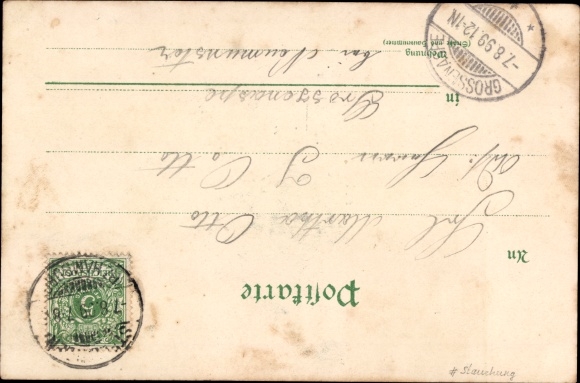 Postkarte
An
Frl. Martha Otto
Adr. Herrn J. Otto
in Grossenaspe
Wohnung
(Straße und Hausnummer)
bei Neumünster
-7.8.99.12-1N
5
# Stauchung